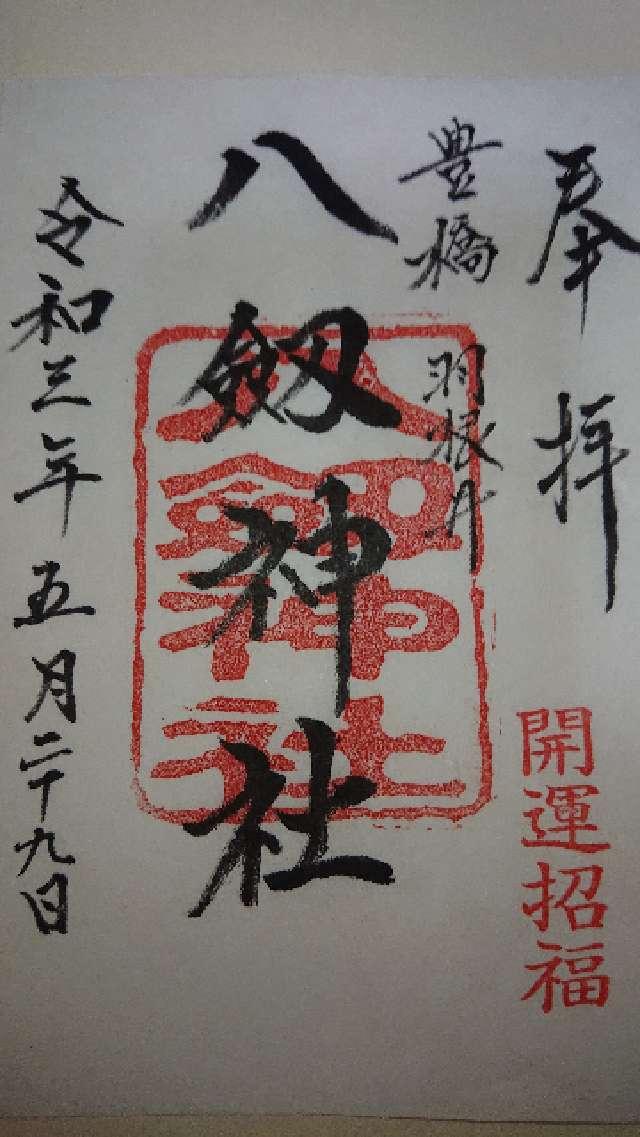 奉拝
開運招福
豊橋 羽根井
八劔神社
八劔神社
令和三年五月二十九日